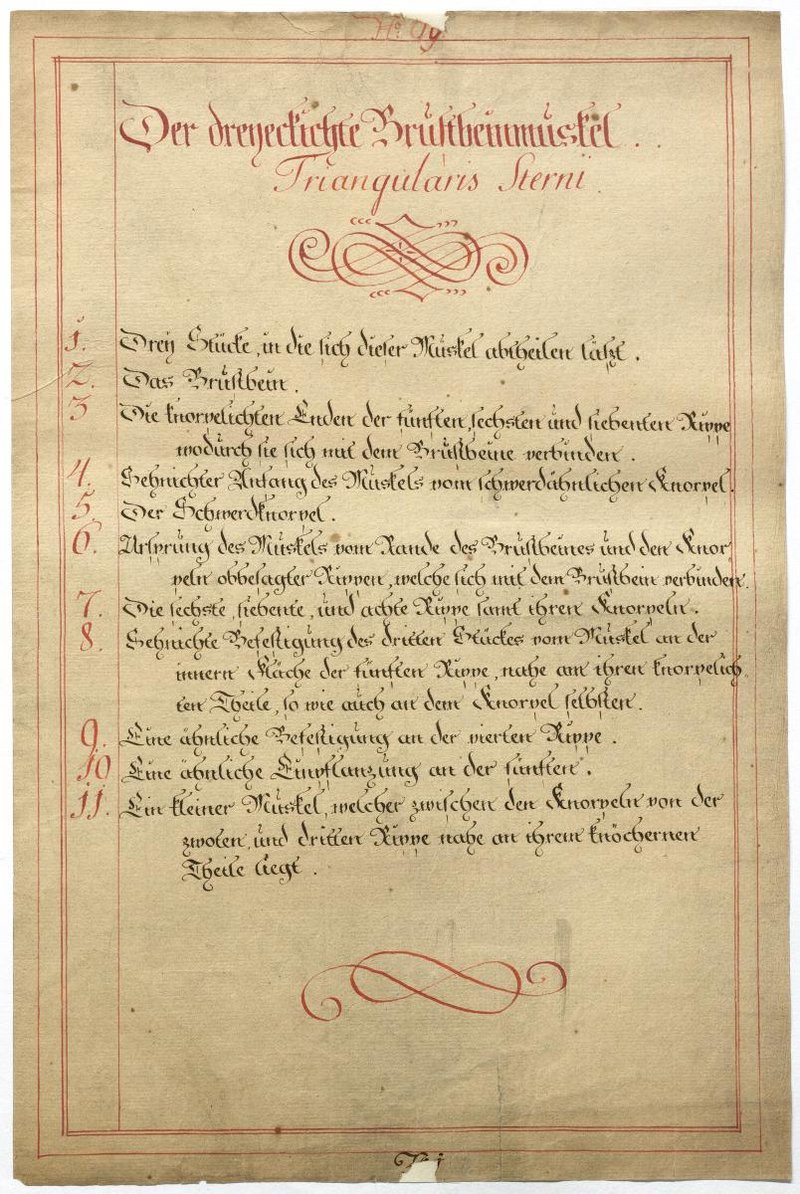 Der dreyeckichte Brustbeinmuskel.
Triangularis Sterni.
1. Drey Stücke, in die sich dieser Muskel abtheilen läßt.
2. Das Brustbein.
3 Die knorpelichten Enden der fünften, sechsten und siebenten Rippe
wodurch sie sich mit dem Brustbeine verbinden.
4. Sehnichter Anfang des Muskels vom schwerdähnlichen Knorpel.
5. Der Schwerdknorpel.
6. Ursprung des Muskels vom Rande des Brustbeines und den Knor
peln obbesagter Rippen, welche sich mit dem Brustbein verbinden.
7. Die sechste, siebente, und achte Rippe samt ihren Knorpeln.
8. Sehnichte Befestigung des dritten Stückes vom Muskel an der
innern Fläche der fünften Rippe, nahe am ihren knorpelich
ten Theile, so wie auch an dem Knorpel selbsten.
9. Eine ähnliche Befestigung an der vierten Rippe.
10 Eine ähnliche Einpflanzung an der fünften.
11. Ein kleiner Muskel, welcher zwischen den Knorpeln von der
zwoten, und dritten Rippe nahe an ihrem knöchernen
Theile liegt.